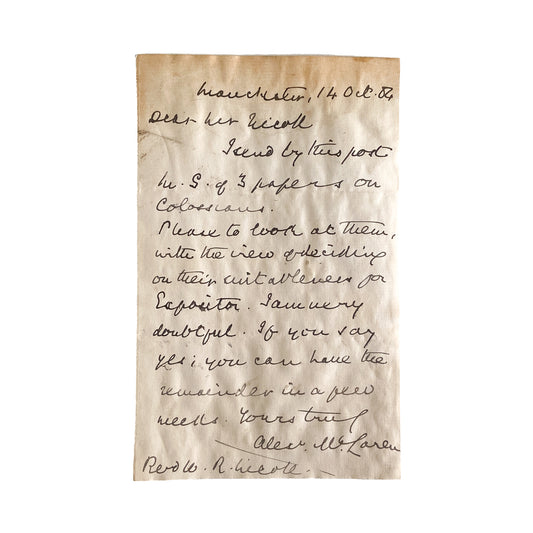 Manchester, 14 Oct. 84
Dear Mr Nicoll
I send by this post
M.S. of 3 papers on
Colossians.
Please to look at them,
with the view of deciding
on their suitableness for
Expositor. I am very
doubtful. If you say
yes, you can have the
remainder in a few
weeks. Yours truly
Alex. McLaren
Revd W. R. Nicoll.